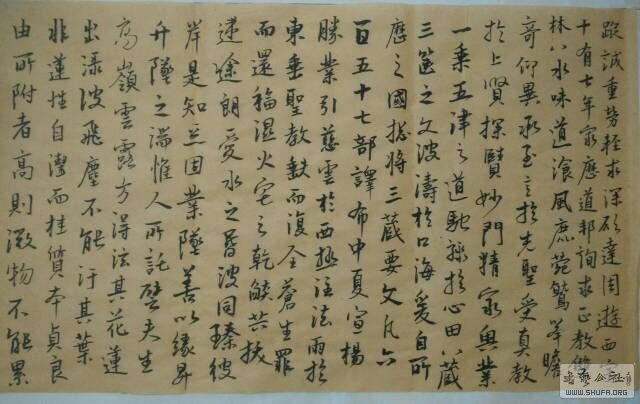 蹤誠重勞輕求深願達周遊西宇
十有七年窮歷道邦詢求正教雙
林八水味道飡風鹿菀鷲峯瞻
奇仰異承至言於先聖受真教
於上賢探賾妙門精窮奧業
一乘五律之道馳驟於心田八藏
三篋之文波濤於口海爰自所
歷之國揔將三藏要文凡六
百五十七部譯布中夏宣楊
勝業引慈雲於西極注法雨於
東垂聖教缺而復全蒼生罪
而還福濕火宅之乾燄共拔
迷途朗愛水之昏波同臻彼
岸是知惡因業墜善以緣昇
升墜之端惟人所託譬夫生
高嶺雲露方得泫其花蓮
出淥波飛塵不能汙其葉
非蓮性自潔而桂質本貞良
由所附者高則微物不能累
书法公社
WWW.SHUFA.ORG